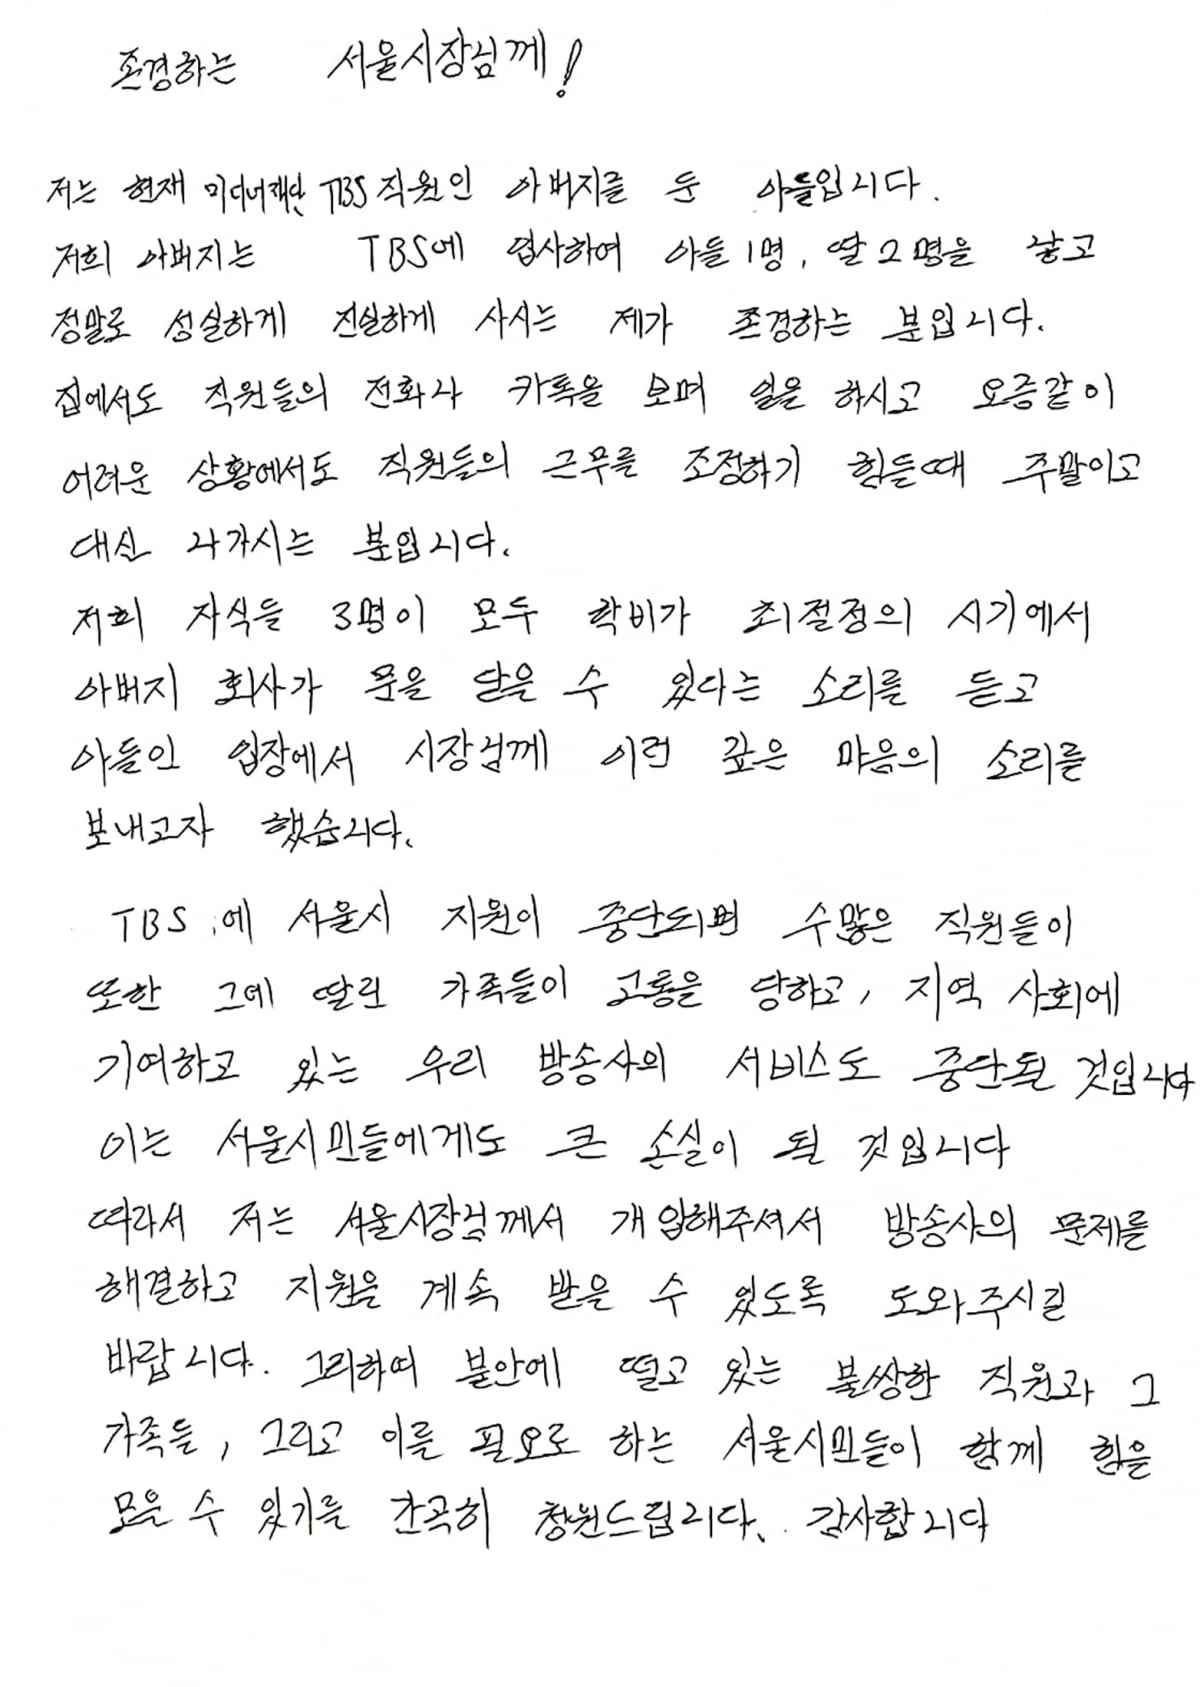 존경하는 서울시장님께!
저는 현재 미디어재단 TBS 직원인 아버지를 둔 아들입니다.
저희 아버지는 TBS에 입사하여 아들 1명, 딸 2명을 낳고
정말로 성실하게 진실하게 사시는 제가 존경하는 분입니다.
집에서도 직원들의 전화나 카톡을 보며 일을 하시고 요즘같이
어려운 상황에서도 직원들의 근무를 조정하기 힘들때 주말이고
대신 나가시는 분입니다.
저희 자식들 3명이 모두 학비가 최절정의 시기에서
아버지 회사가 문을 닫을 수 있다는 소리를 듣고
아들인 입장에서 시장님께 이런 깊은 마음의 소리를
보내고자 했습니다.
TBS에 서울시 지원이 중단되면 수많은 직원들이
또한 그에 딸린 가족들이 고통을 당하고, 지역 사회에
기여하고 있는 우리 방송사의 서비스도 중단될 것입니다
이는 서울시민들에게도 큰 손실이 될 것입니다
따라서 저는 서울시장님께서 개입해주셔서 방송사의 문제를
해결하고 지원을 계속 받을 수 있도록 도와주시길
바랍니다. 그리하여 불안에 떨고 있는 불쌍한 직원과 그
가족들, 그리고 이를 필요로 하는 서울시민들이 함께 힘을
모을 수 있기를 간곡히 청원드립니다. 감사합니다